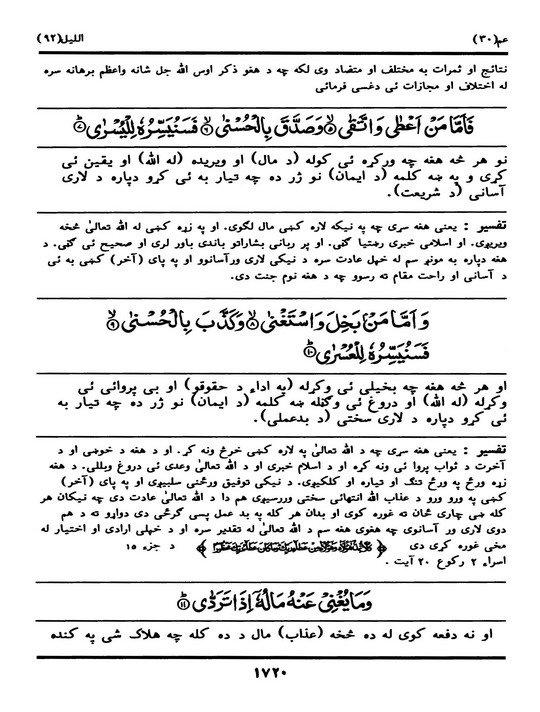 عم (۳۰)
اللیل (۹۲)
نتائج او ثمرات به مختلف او متضاد وی لکه چه د هغو ذکر اوس الله جل شانه واعظم برهانه سره
له اختلاف او مجازات ئی دغسی فرمائی
فَاَمَّا مَنْ اَعْطٰى وَاتَّقٰى ۙ۵ وَصَدَّقَ بِالْحُسْنٰى ۙ۶ فَسَنُيَسِّرُهٗ لِلْيُسْرٰى ؕ۷
نو هر څه هغه چه ورکړه ئی کوله (د مال) او ویریده (له الله) او یقین ئی
کړی و په ښه کلمه (د ایمان) نو ژر ده چه تیار به ئی کړو دپاره د لاری
آسانی (د شریعت).
تفسیر : یعنی هغه سړی چه په نیکه لاره کښی مال لګوی. او په زړه کښی له الله تعالیٰ څخه
ویریږی. او اسلامی خبری رښتیا ګڼی. او پر ربانی بشاراتو باندی باور لری او صحیح ئی ګڼی. د
هغه دپاره به مونږ سم له خپل عادت سره د نیکی لاری ورآسانوو او په پای (آخر) کښی به ئی
د آسانی او راحت مقام ته رسوو چه د هغه نوم جنت دی.
وَاَمَّا مَنْۢ بَخِلَ وَاسْتَغْنٰى ۙ۸ وَكَذَّبَ بِالْحُسْنٰى ۙ۹
فَسَنُيَسِّرُهٗ لِلْعُسْرٰى ؕ۱۰
او هر څه هغه چه بخیلی ئی وکړله (په اداء د حقوقو) او بی پروائی ئی
وکړله (له الله) او دروغ ئی وګڼله ښه کلمه (د ایمان) نو ژر ده چه تیار به
ئی کړو دپاره د لاری سختی (د بدعملی).
تفسیر : یعنی هغه سړی چه د الله تعالیٰ په لاره کښی خرڅ ونه کړ. او د هغه د خوښی او د
آخرت د ثواب پروا ئی ونه کړه او د اسلام خبری او د الله تعالیٰ وعدی ئی دروغ وبللی. د هغه
زړه ورځ په ورځ تنګ او تیاره او کلکیږی. د نیکی توفیق ورځنی سلبیږی او په پای (آخر)
کښی په ورو ورو د عذاب الله انتهائی سختی وررسیږی هم دا د الله تعالیٰ عادت دی چه نیکان هر
کله ښی چاری ځان ته غوره کوی او بدان هر کله په بد عمل پسی ګرځی دی دواړو ته د هم
دوی لاری ور آسانوی چه هغوی هغه سم د الله تعالیٰ له تقدیر سره او د خپلی ارادی او اختیار له
مخی غوره کړی دی د جزء ۱۵
اسراء ۲ رکوع ۲۰ آیت .
وَمَا يُغْنِيْ عَنْهُ مَالُهٗۤ اِذَا تَرَدّٰى ؕ۱۱
او نه دفعه کوی له ده څخه (عذاب) مال د ده کله چه هلاک شی په کنده
۱۷۲۰